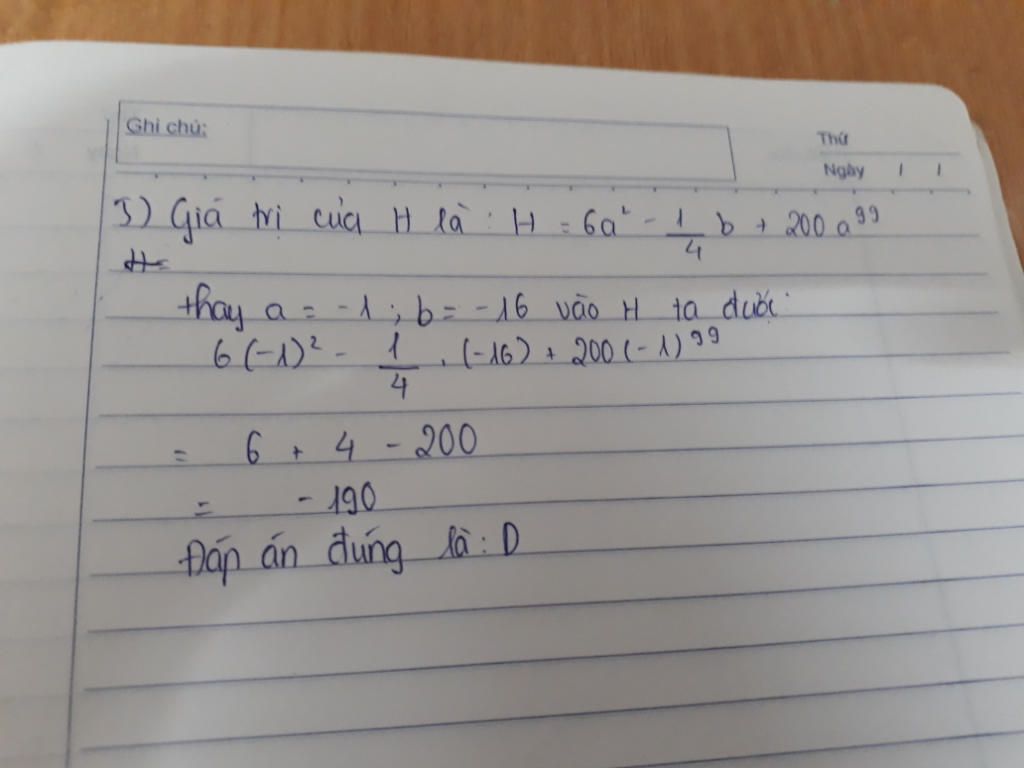 Ghi chú:
Thứ
Ngày / /
5) Giá trị của H là : H = 6a² - 1/4 b + 200 a⁹⁹
H=
thay a = -1 ; b = -16 vào H ta được:
6(-1)² - 1/4 . (-16) + 200(-1)⁹⁹
= 6 + 4 - 200
= -190
Đáp án đúng là : D